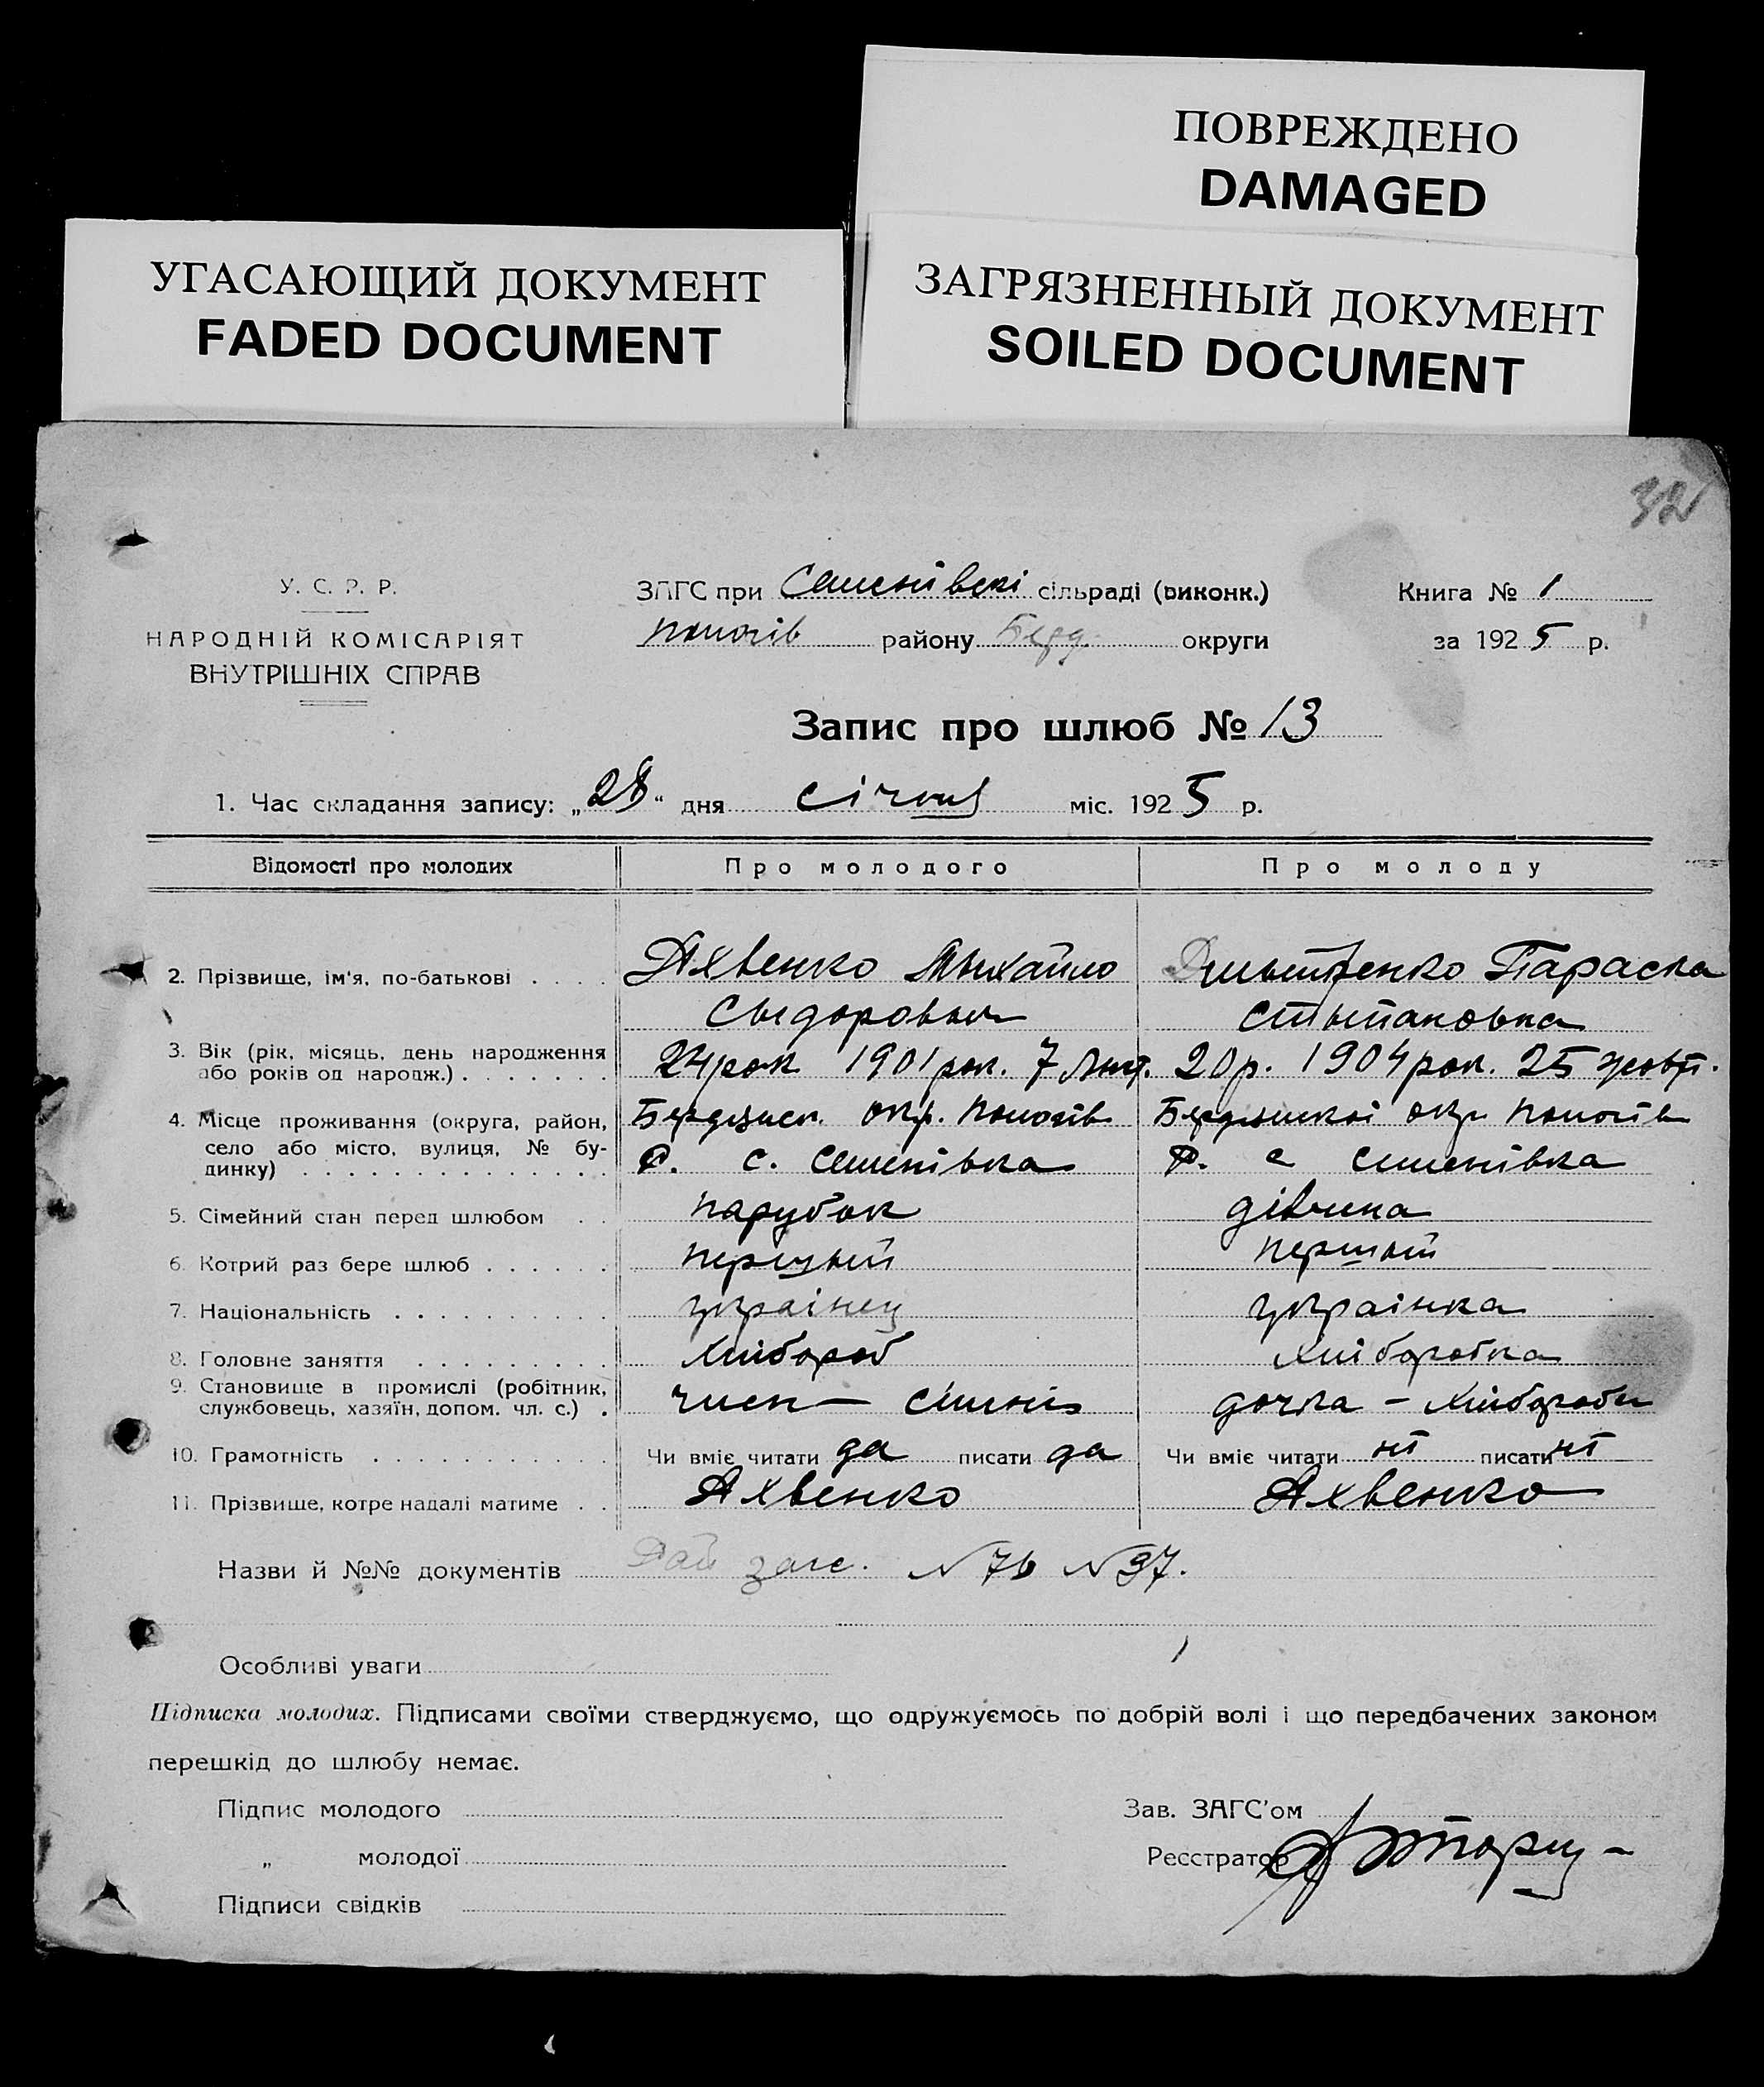 ПОВРЕЖДЕНО
DAMAGED
УГАСАЮЩИЙ ДОКУМЕНТ
FADED DOCUMENT
ЗАГРЯЗНЕННЫЙ ДОКУМЕНТ
SOILED DOCUMENT
32
У. С. Р. Р.
НАРОДНІЙ КОМІСАРІЯТ
ВНУТРІШНІХ СПРАВ
ЗАГС при Семенівскі сільраді (виконк.)
Пологів району Берд. округи
Книга № 1
за 1925 р.
Запис про шлюб № 13
1. Час складання запису: „28“ дня січня міс. 1925 р.
Відомості про молодих Про молодого Про молоду
2. Прізвище, ім'я, по-батькові . . . . Яхвенко Мыхайло Дмытренко Параска
Сыдоровыч Стыпановна
3. Вік (рік, місяць, день народження або років од народж.) . . . . . . . 24 рок 1901 рок. 7 Лют. 20 р. 1904 рок. 25 жовт.
4. Місце проживання (округа, район, село або місто, вулиця, № будинку) . . . . . . . . . . . Бердянск. окр. Пологів Бердянскоі окр Пологів
Р. с. Семенівка Р. с Семенівка
5. Сімейний стан перед шлюбом . . парубок дівчина
6. Котрий раз бере шлюб . . . . . . першый першый
7. Національність . . . . . . . . . . українец українка
8. Головне заняття . . . . . . . . . хлібороб хліборобка
9. Становище в промислі (робітник, службовець, хазяїн, допом. чл. с.) . член — сімьі дочка — хлібороба
10. Грамотність . . . . . . . . . . . Чи вміє читати да писати да Чи вміє читати ні писати ні
11. Прізвище, котре надалі матиме . . Яхвенко Яхвенко
Назви й №№ документів Рай загс. N 76 N 97.
Особливі уваги
Підписка молодих. Підписами своїми стверджуємо, що одружуємось по добрій волі і що передбачених законом
перешкід до шлюбу немає.
Підпис молодого Зав. ЗАГС'ом
„ молодої Реєстратор
Підписи свідків